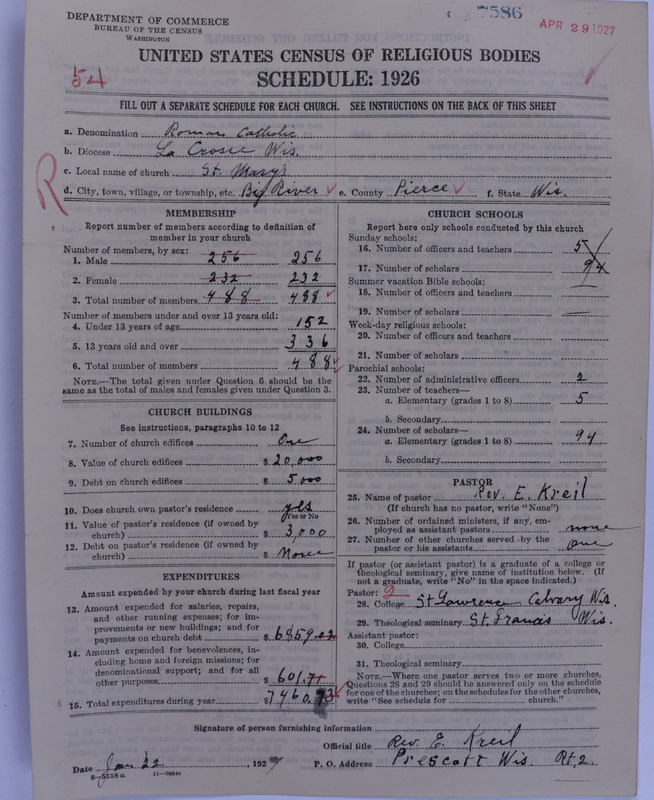 DEPARTMENT OF COMMERCE
BUREAU OF THE CENSUS
WASHINGTON
7586
APR 29 1927
UNITED STATES CENSUS OF RELIGIOUS BODIES
SCHEDULE: 1926
54
FILL OUT A SEPARATE SCHEDULE FOR EACH CHURCH. SEE INSTRUCTIONS ON THE BACK OF THIS SHEET
a. Denomination Roman Catholic
b. Diocese La Crosse Wis.
c. Local name of church St. Mary's
R
d. City, town, village, or township, etc. Big River e. County Pierce f. State Wis.
MEMBERSHIP
Report number of members according to definition of
member in your church
Number of members, by sex:
1. Male 256 256
2. Female 232 232
3. Total number of members 488 488
Number of members under and over 13 years old:
4. Under 13 years of age 152
5. 13 years old and over 336
6. Total number of members 488
NOTE.—The total given under Question 6 should be
same as the total of males and females given under Question 3.
CHURCH BUILDINGS
See instructions, paragraphs 10 to 12
7. Number of church edifices One
8. Value of church edifices $ 20,000
9. Debt on church edifices $ 5000
10. Does church own pastor's residence yes
Yes or No
11. Value of pastor's residence (if owned by
church) $ 3,000
12. Debt on pastor's residence (if owned by
church) $ None
EXPENDITURES
Amount expended by your church during last fiscal year
13. Amount expended for salaries, repairs,
and other running expenses; for im-
provements or new buildings; and for
payments on church debt $ 6859.02
14. Amount expended for benevolences, in-
cluding home and foreign missions; for
denominational support; and for all
other purposes $ 601.71
15. Total expenditures during year $ 7460.73
CHURCH SCHOOLS
Report here only schools conducted by this church
Sunday schools:
16. Number of officers and teachers 5
17. Number of scholars 94
Summer vacation Bible schools:
18. Number of officers and teachers
19. Number of scholars
Week-day religious schools:
20. Number of officers and teachers
21. Number of scholars
Parochial schools:
22. Number of administrative officers 2
23. Number of teachers—
a. Elementary (grades 1 to 8) 5
b. Secondary
24. Number of scholars—
a. Elementary (grades 1 to 8) 94
b. Secondary
PASTOR
25. Name of pastor Rev. E. Kreil
(If church has no pastor, write "None")
26. Number of ordained ministers, if any, em-
ployed as assistant pastors none
27. Number of other churches served by the
pastor or his assistants One
If pastor (or assistant pastor) is a graduate of a college or
theological seminary, give name of institution below. (If
not a graduate, write "No" in the space indicated.)
Pastor: 2
28. College St Lawrence Calvary Wis.
29. Theological seminary St. Francis Wis.
Assistant pastor:
30. College
31. Theological seminary
NOTE.—Where one pastor serves two or more churches,
Questions 28 and 29 should be answered only on the schedule
for one of the churches; on the schedules for the other churches,
write "See schedule for church."
Signature of person furnishing information
Official title Rev. E. Kreil
Date Jan 22, 1927 P. O. Address Prescott Wis. Rt. 2.
8-5518a 11-9064